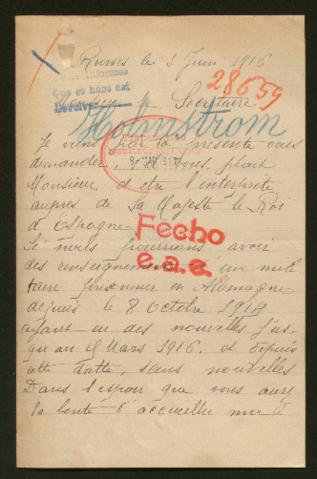 Rumes le 3 Juin 1916
28659
informes
Que se hace así
Devolver
Secrétaire
Holmstrom
Je viens par la présente vous
demander, s'il vous plait
Monsieur d'être l'interprète
aupres de Sa Majesté le Roi
d'Espagne
Fecho
Si nous pourrions avoir
des renseignements d'un mili
e.a.e.
taire prisonnier en Allemagne
depuis le 8 Octobre 1914
ayant eu des nouvelles jus-
qu'au Mars 1916. et depuis
cette datte, sans nouvelles
Dans l'espoir que vous aurez
la bonté d'accueillir ma d